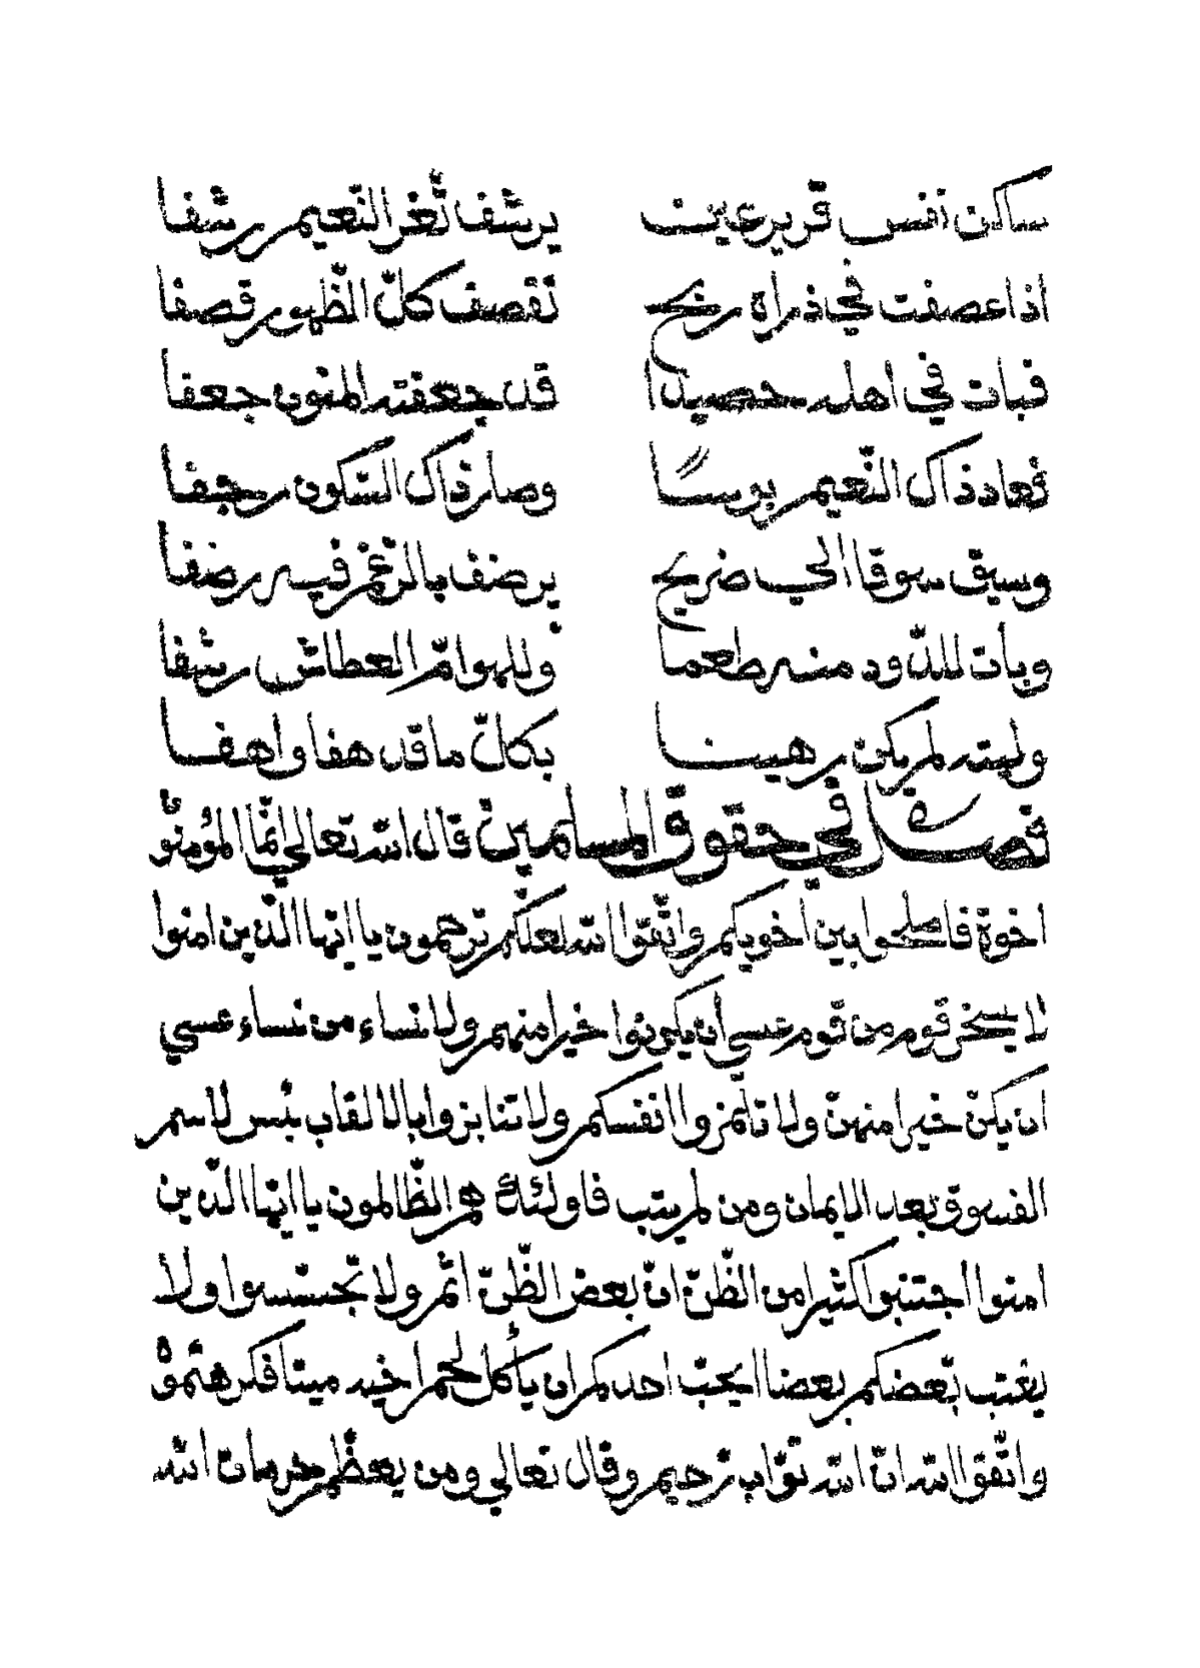 ساكن نفس قرير عين يرشف ثغر النّعيم رشفا
اذا عصفت في ذراه ريح تقصف كلّ الظّهور قصفا
فبات في اهله حصيدا قد جعفته المنون جعفا
فعاد ذاك النّعيم بوسًا وصار ذاك السّكون رجفا
وسيق سوقا الي ضريح يرضف بالرّغم فيه رضفا
وبات للدّود منه طعما وللهوامّ العطاش رشفا
وليته لم يكن رهينا بكلّ ما قد هفا واهفا
فصل في حقوق المسلمين قال الله تعالي انّما المؤمنو
اخوة فاصلحوا بين اخويكم واتّقوا الله لعلّكم ترحمون يا ايّها الّذين امنوا
لا يسخر قوم من قوم عسي ان يكونوا خيرا منهم ولا نساء من نساء عسي
ان يكنّ خيرا منهنّ ولا تلمزوا انفسكم ولا تنابزوا بالالقاب بئس لاسم
الفسوق بعد الايمان ومن لم يتب فاولئك هم الظّالمون يا ايّها الّذين
امنوا اجتنبوا كثيرا من الظّنّ انّ بعض الظّنّ اثم ولا تجسّسوا ولا
يغتب بّعضكم بعضا ايحبّ احدكم ان يأكل لحم اخيه ميتا فكرهتموه
واتّقوا الله انّ الله توّاب رّحيم وقال تعالي ومن يعظّم حرمات الله